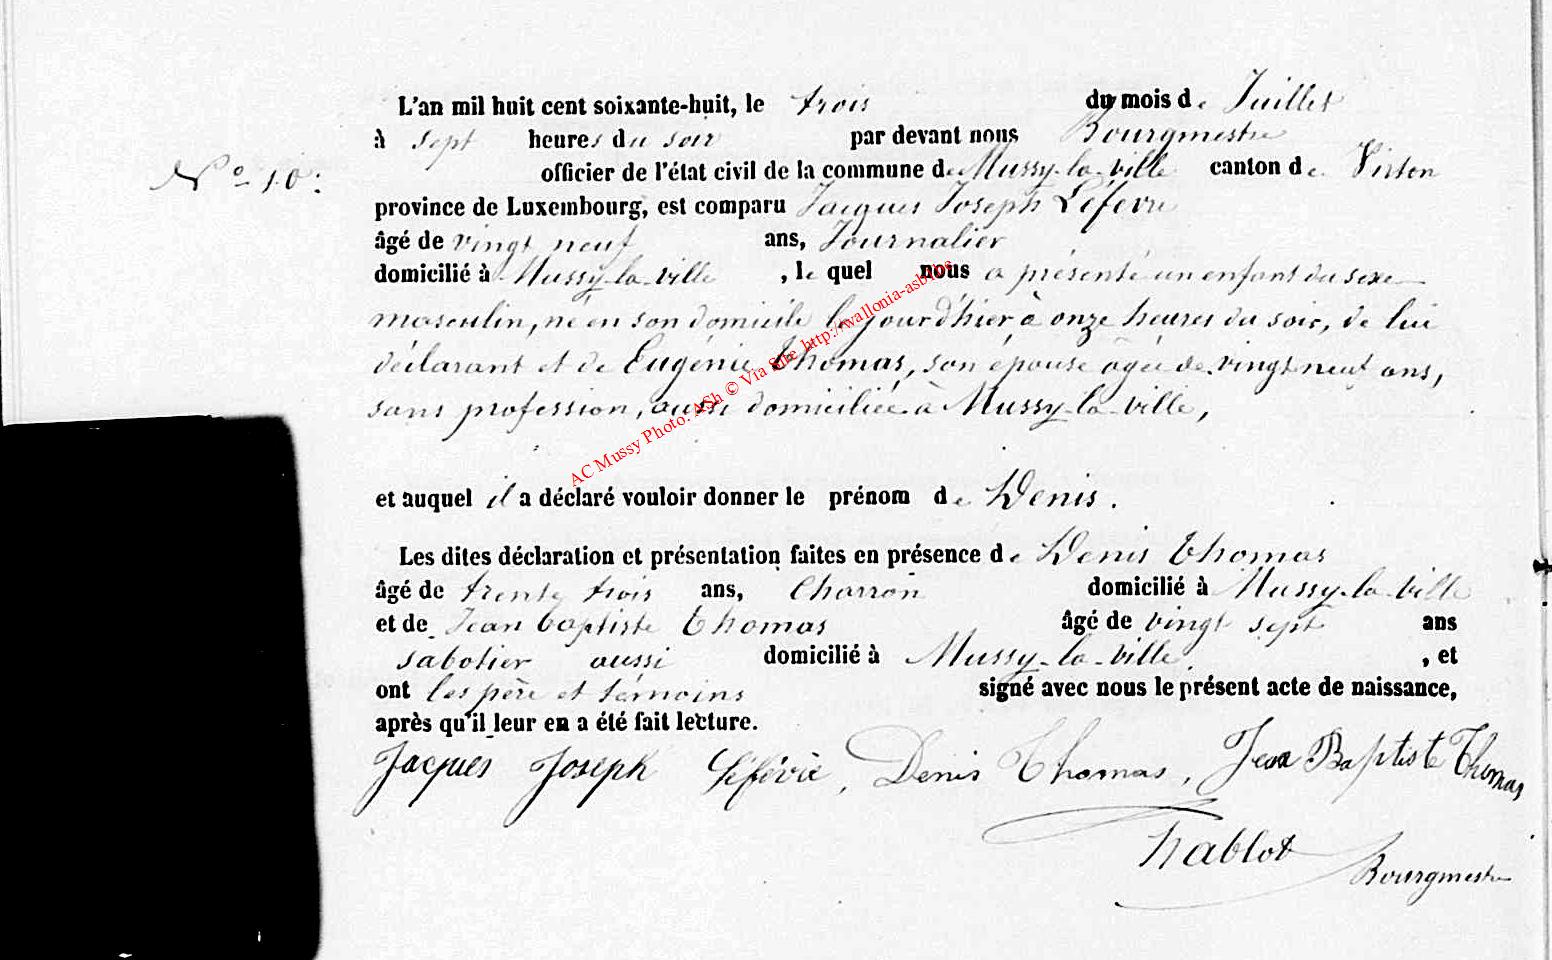 L'an mil huit cent soixante-huit, le trois du mois de Juillet
à sept heures du soir par devant nous Bourgmestre
officier de l'état civil de la commune de Mussy-la-ville canton de Virton
N° 10.
province de Luxembourg, est comparu Jacques Joseph Léfevre
âgé de vingt neuf ans, Journalier
domicilié à Mussy-la-ville, le quel nous a présenté un enfant du sexe
masculin, né en son domicile le jour d'hier à onze heures du soir, de lui
déclarant et de Eugénie Thomas, son épouse âgée de vingt neuf ans,
sans profession, aussi domiciliée à Mussy-la-ville,
AC Mussy Photo: ASh © Via Site http://wallonia-asbl.be
et auquel il a déclaré vouloir donner le prénom de Denis.
Les dites déclaration et présentation faites en présence de Denis Thomas
âgé de trente trois ans, Charron domicilié à Mussy-la-ville
et de Jean Baptiste Thomas âgé de vingt sept ans
sabotier aussi domicilié à Mussy-la-ville, et
ont les père et témoins signé avec nous le présent acte de naissance,
après qu'il leur en a été fait lecture.
Jacques Joseph Léfévre, Denis Thomas, Jean Baptiste Thomas
Bourgmestre